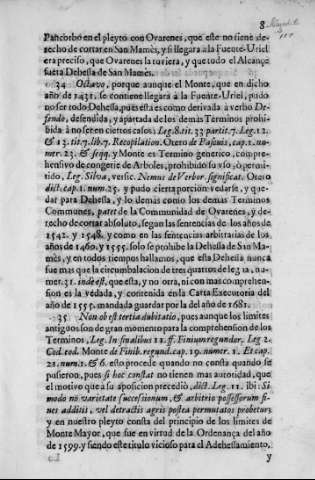 8
Pancorbo en el pleyto con Ovarenes, que este no tiene de-
recho de cortar en San Mamès, y si llegara à la Fuente-Uriel
era preciso, que Ovarenes la tuviera, y que todo el Alcançe
fuera Dehessa de San Mamès.
34 Octavo, porque aunque el Monte, que en dicho
año de 1431. se contiene llegarà à la Fuente-Uriel, pudo
no ser todo Dehessa, pues esta es como derivada à verbo De-
fendo, defendida, y apartada de los demàs Terminos prohi-
bida à no ser en ciertos casos: Leg. 8. tit. 33 partit. 7. Leg. 12.
& 13. tit. 7. lib. 7. Recopilation. Otero de Pascuis, cap. 1. nu-
mer. 23. & seqq. y Monte es Termino generico, compre-
hensivo de congerie de Arboles, prohibido su vso, ò permi-
tido, Leg. Silva, versic. Nemus de Verbor. significat. Otero
dict. cap. 1. num. 25. y pudo cierta porcion vedarse, y que-
dar para Dehessa, y lo demàs como los demàs Terminos
Communes, patet de la Comunidad de Ovarenes, y de-
recho de cortar absoluto, segun las sentencias de los años de
1542. y 1548. y como en las sentencias arbitrarias de los
años de 1460. y 1555. solo se prohibe la Dehessa de San Ma-
mès, y en todos tiempos hallamos, que esta Dehessa nunca
fue mas que la circumbalacion de tres quartos de leg̃ia, nu-
mer. 31. inde est, que esta, y no otra, ni con mas comprehen-
sion es la vedada, y contenida en la Carta Executoria del
año de 1555. mandada guardar por la del año de 1681.
35 Non obest tertia dubitatio, pues aunque los limites
antiguos son de gran momento para la comprehension de los
Terminos, Leg. In finalibus 11. ff. Finium regundor, Leg 2.
Cod. eod. Monte de Finib. regund. cap. 19. numer. 1. Et cap.
21. num. 1. & 6. esto procede quando no consta quando se
pusieron, pues si hoc constat no tienen mas autoridad, que
el motivo que a su aposicion precediò, dict. Leg. 11. ibi: Si
modo nò varietate successionum, & arbitrio possessorum fi-
nes additis, vel detractis agris postea permutatos probetur;
y en nuestro pleyto consta del principio de los limites de
Monte Mayor, que fue en virtud de la Ordenança del año
de 1599. y siendo este titulo vicioso para el Adehessamiento,
y